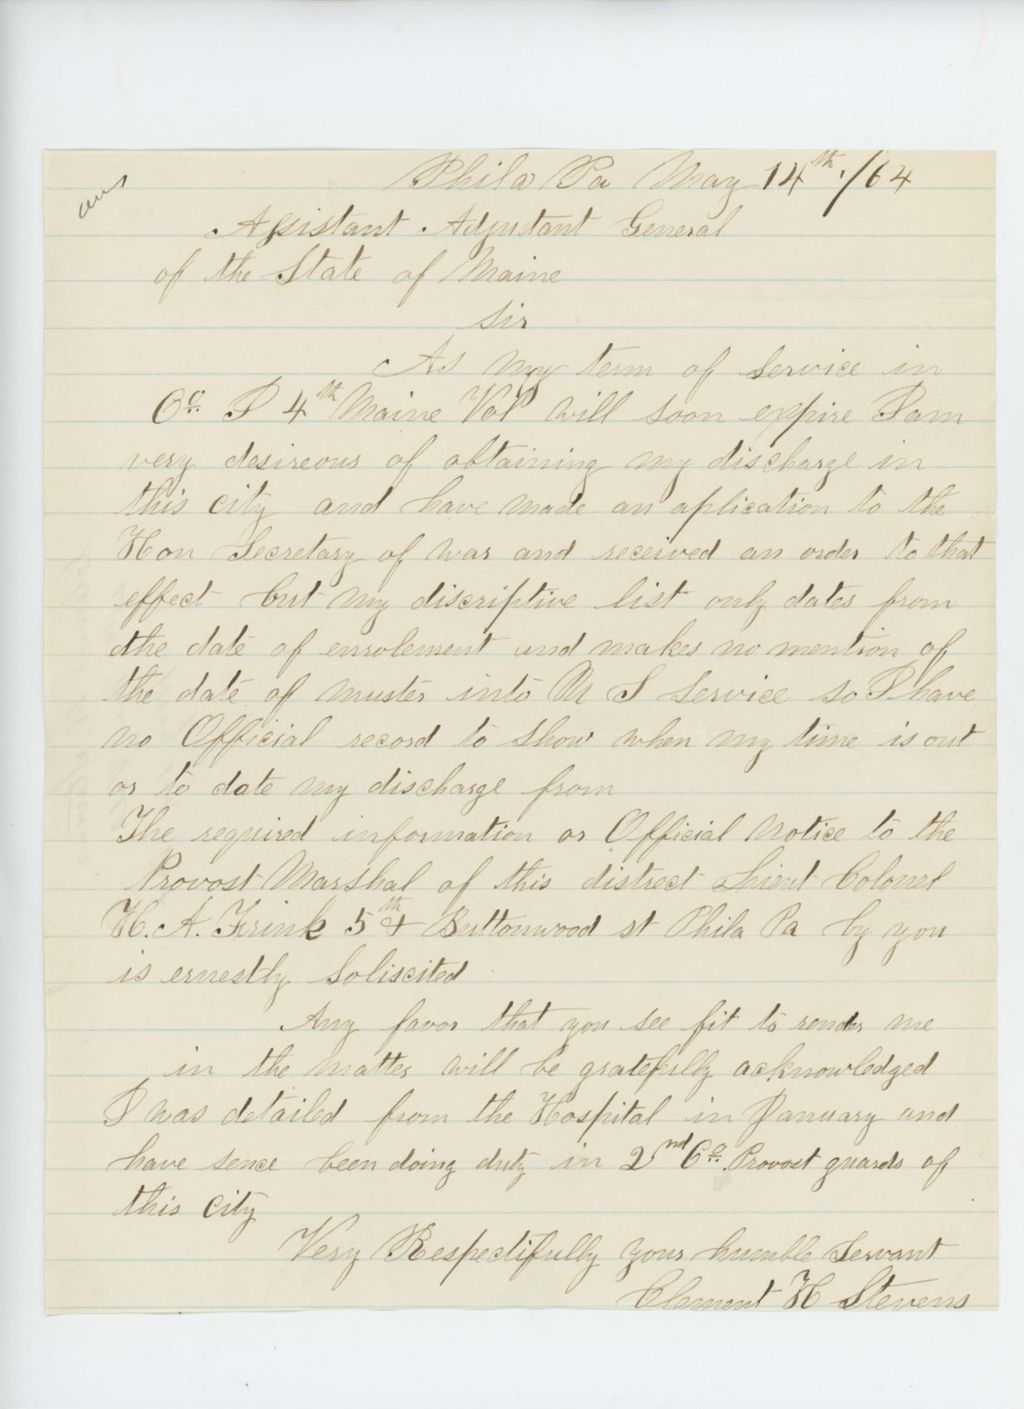 ans
Phila Pa May 14th /64
Assistant Adjutant General
of the State of Maine
Sir
As my term of Service in
Co. I 4th Maine Vol will soon expire I am
very desireous of obtaining my discharge in
this city and have made an aplication to the
Hon Secretary of war and received an order to that
effect but my discriptive list only dates from
the date of enrolement and makes no mention of
the date of muster into U S service so I have
no Official record to show when my time is out
or to date my discharge from
The required information or Official Notice to the
Provost Marshal of this district Lieut Colonel
H. A. Frink 5th & Buttonwood st Phila Pa by you
is ernestly soliscited
Any favor that you see fit to render me
in the matter will be gratefully acknowledged
I was detailed from the Hospital in January and
have sence been doing duty in 2nd Co. Provost guards of
this city
Very Respectifully your humble Servant
Clement H Stevens